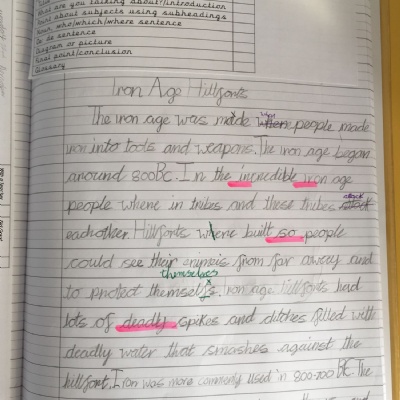 are you talking about/introduction
about subjects using subheadings
who/which/where sentence
sentence
Diagram or picture
point/conclusion
Glossary
Iron Age Hillforts
The iron age was made when people made
iron into tools and weapons. The iron age began
around 800BC. In the incredible iron age
people where in tribes and these tribes attack
eachother. Hillforts where built so people
could see their enymeis from far away and
themselves
to protect themselfs. Iron age hillforts had
lots of deadly spikes and ditches filled with
deadly water that smashes against the
hillfort. Iron was more commenly used in 800-700 BC. The